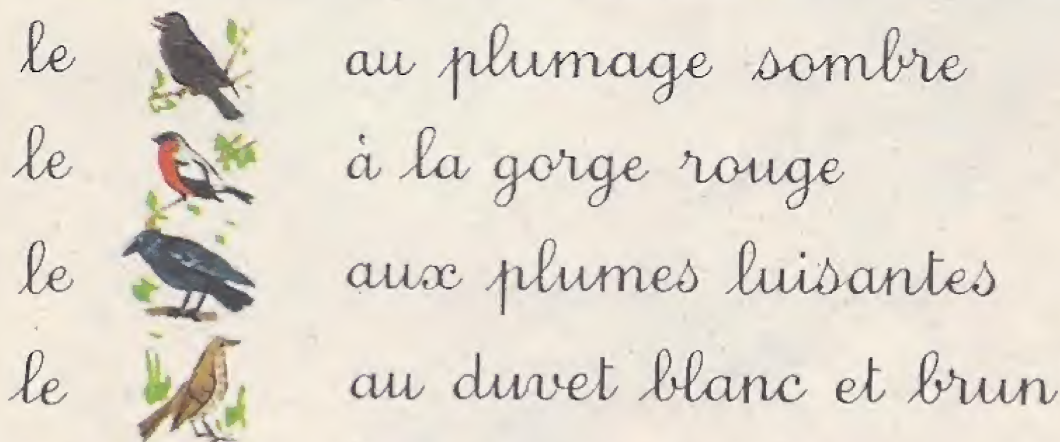 le au plumage sombre
le à la gorge rouge
le aux plumes luisantes
le au duvet blanc et brun